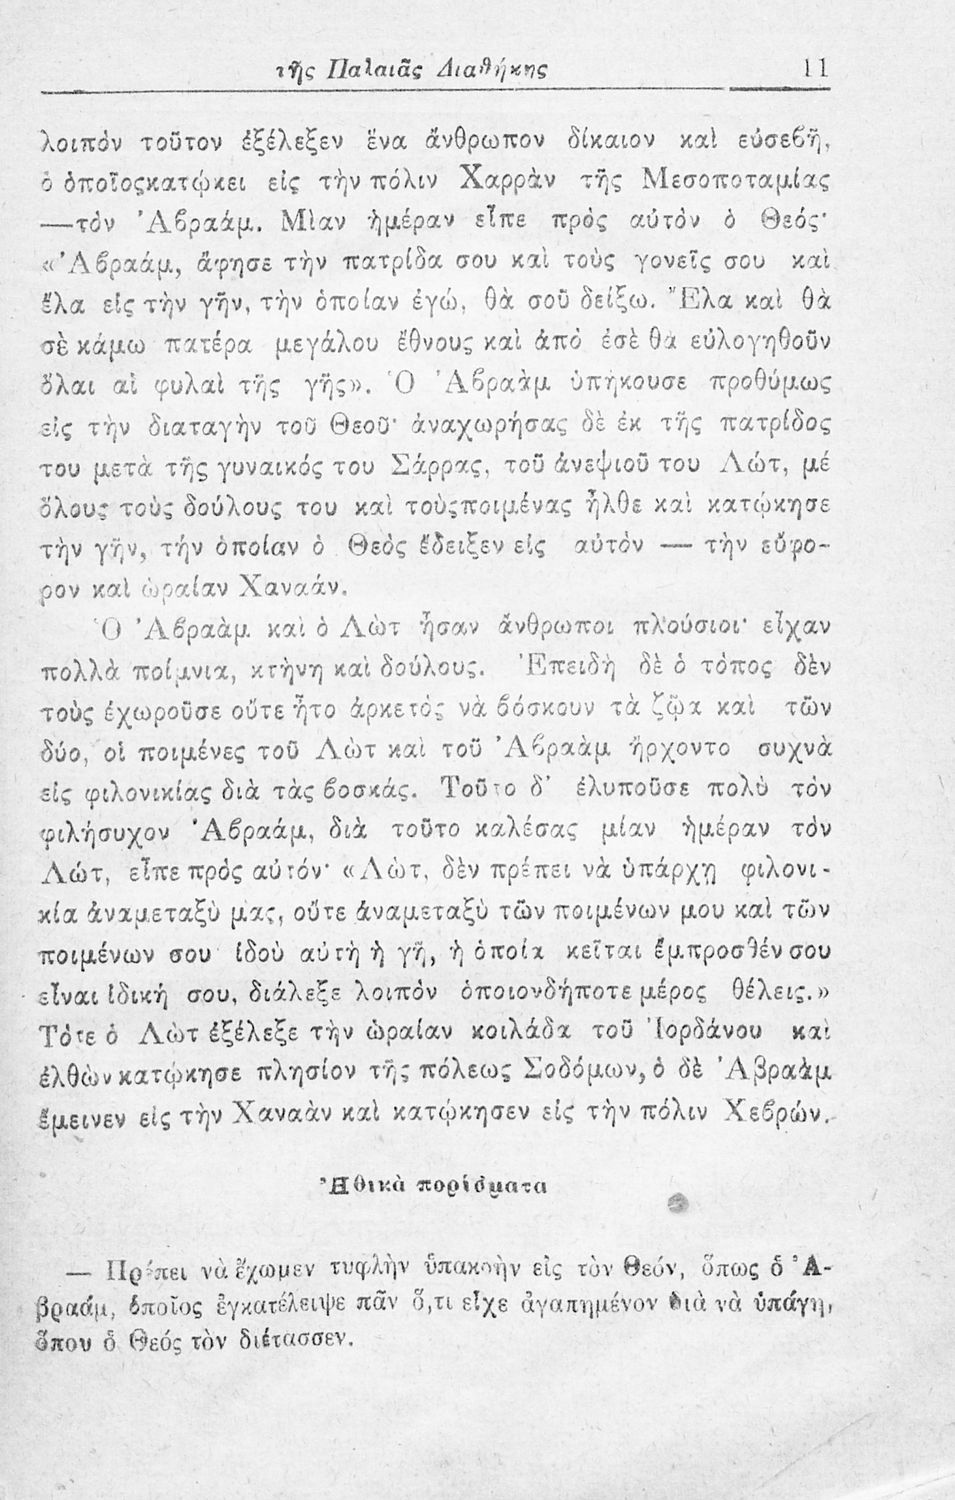 τῆς Παλαιᾶς Διαθήκης 11
λοιπὸν τοῦτον ἐξέλεξεν ἕνα ἄνθρωπον δίκαιον καὶ εὐσεβῆ,
ὁ ὁποῖοςκατῴκει εἰς τὴν πόλιν Χαρρὰν τῆς Μεσοποταμίας
—τὸν Ἀβραάμ. Μὶαν ἡμέραν εἶπε πρὸς αὐτὸν ὁ Θεός·
«Ἀβραάμ, ἄφησε τὴν πατρίδα σου καὶ τοὺς γονεῖς σου καὶ
ἔλα εἰς τὴν γῆν, τὴν ὁποίαν ἐγώ, θὰ σοῦ δείξω. Ἔλα καὶ θὰ
σὲ κάμω πατέρα μεγάλου ἔθνους καὶ ἀπὸ ἐσὲ θὰ εὐλογηθοῦν
ὅλαι αἱ φυλαὶ τῆς γῆς». Ὁ Ἀβραὰμ ὑπήκουσε προθύμως
εἰς τὴν διαταγὴν τοῦ Θεοῦ· ἀναχωρήσας δὲ ἐκ τῆς πατρίδος
του μετὰ τῆς γυναικός του Σάρρας, τοῦ ἀνεψιοῦ του Λώτ, μέ
ὅλους τοὺς δούλους του καὶ τοὺςποιμένας ἦλθε καὶ κατῴκησε
τὴν γῆν, τήν ὁποίαν ὁ Θεὸς ἔδειξεν εἰς αὐτὸν — τὴν εὔφο-
ρον καὶ ὡραίαν Χαναάν.
Ὁ Ἀβραὰμ καὶ ὁ Λὼτ ἦσαν ἄνθρωποι πλούσιοι· εἶχαν
πολλὰ ποίμνια, κτήνη καὶ δούλους. Ἐπειδὴ δὲ ὁ τόπος δὲν
τοὺς ἐχωροῦσε οὔτε ἦτο ἀρκετὸς νὰ βόσκουν τὰ ζῷα καὶ τῶν
δύο, οἱ ποιμένες τοῦ Λὼτ καὶ τοῦ Ἀβραὰμ ἤρχοντο συχνὰ
εἰς φιλονικίας διὰ τὰς βοσκάς. Τοῦτο δ' ἐλυποῦσε πολὺ τὸν
φιλήσυχον Ἀβραάμ, διὰ τοῦτο καλέσας μίαν ἡμέραν τὸν
Λώτ, εἶπε πρὸς αὐτόν· «Λὼτ, δὲν πρέπει νὰ ὑπάρχῃ φιλονι-
κία ἀναμεταξὺ μας, οὔτε ἀναμεταξὺ τῶν ποιμένων μου καὶ τῶν
ποιμένων σου ἰδοὺ αὐτὴ ἡ γῆ, ἡ ὁποία κεῖται ἔμπροσθέν σου
εἶναι ἰδική σου, διάλεξε λοιπὸν ὁποιονδήποτε μέρος θέλεις.»
Τότε ὁ Λὼτ ἐξέλεξε τὴν ὡραίαν κοιλάδα τοῦ Ἰορδάνου καὶ
ἐλθὼν κατῴκησε πλησίον τῆς πόλεως Σοδόμων, ὁ δὲ Ἀβραὰμ
ἔμεινεν εἰς τὴν Χαναὰν καὶ κατῴκησεν εἰς τὴν πόλιν Χεβρών.
Ἠθικὰ πορίσματα
— Πρέπει νὰ ἔχωμεν τυφλὴν ὑπακοὴν εἰς τὸν Θεόν, ὅπως ὁ Ἀ-
βραάμ, ὁποῖος ἐγκατέλειψε πᾶν ὅ,τι εἶχε ἀγαπημένον διὰ νὰ ὑπάγῃ,
ὅπου ὁ Θεός τὸν διέτασσεν.